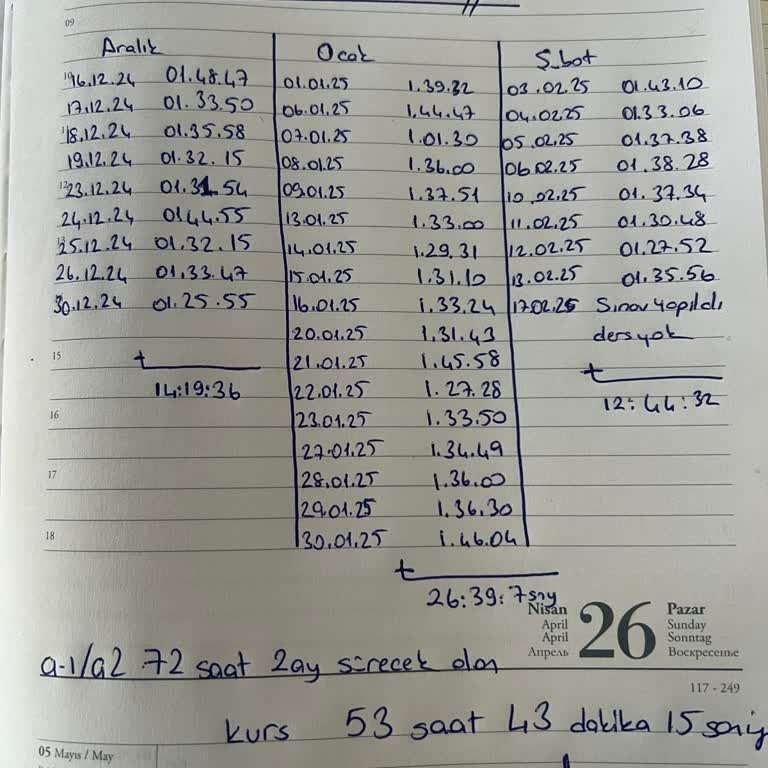 09
Aralık
16.12.24 01.48.47
17.12.24 01.33.50
18.12.24 01.35.58
19.12.24 01.32.15
23.12.24 01.31.54
24.12.24 01.44.55
25.12.24 01.32.15
26.12.24 01.33.47
30.12.24 01.25.55
15
+
14:19:36
Ocak
01.01.25 1.39.32
06.01.25 1.44.47
07.01.25 1.01.30
08.01.25 1.36.00
09.01.25 1.37.51
13.01.25 1.33.00
14.01.25 1.29.31
15.01.25 1.31.10
16.01.25 1.33.24
20.01.25 1.31.43
21.01.25 1.45.58
22.01.25 1.27.28
16
23.01.25 1.33.50
27.01.25 1.34.49
17
28.01.25 1.36.00
29.01.25 1.36.30
18
30.01.25 1.46.04
+
26:39:7sny
Şubat
03.02.25 01.43.10
04.02.25 01.33.06
05.02.25 01.37.38
06.02.25 01.38.28
10.02.25 01.37.34
11.02.25 01.30.48
12.02.25 01.27.52
13.02.25 01.35.56
17.02.25 Sınav yapıldı
ders yok
+
12:44:32
Nisan
April
April
Апрель
26
Pazar
Sunday
Sonntag
Воскресенье
117 - 249
a-1/a2 72 saat 2ay sürecek olan
kurs 53 saat 43 dakika 15 saniy
05 Mayıs / May